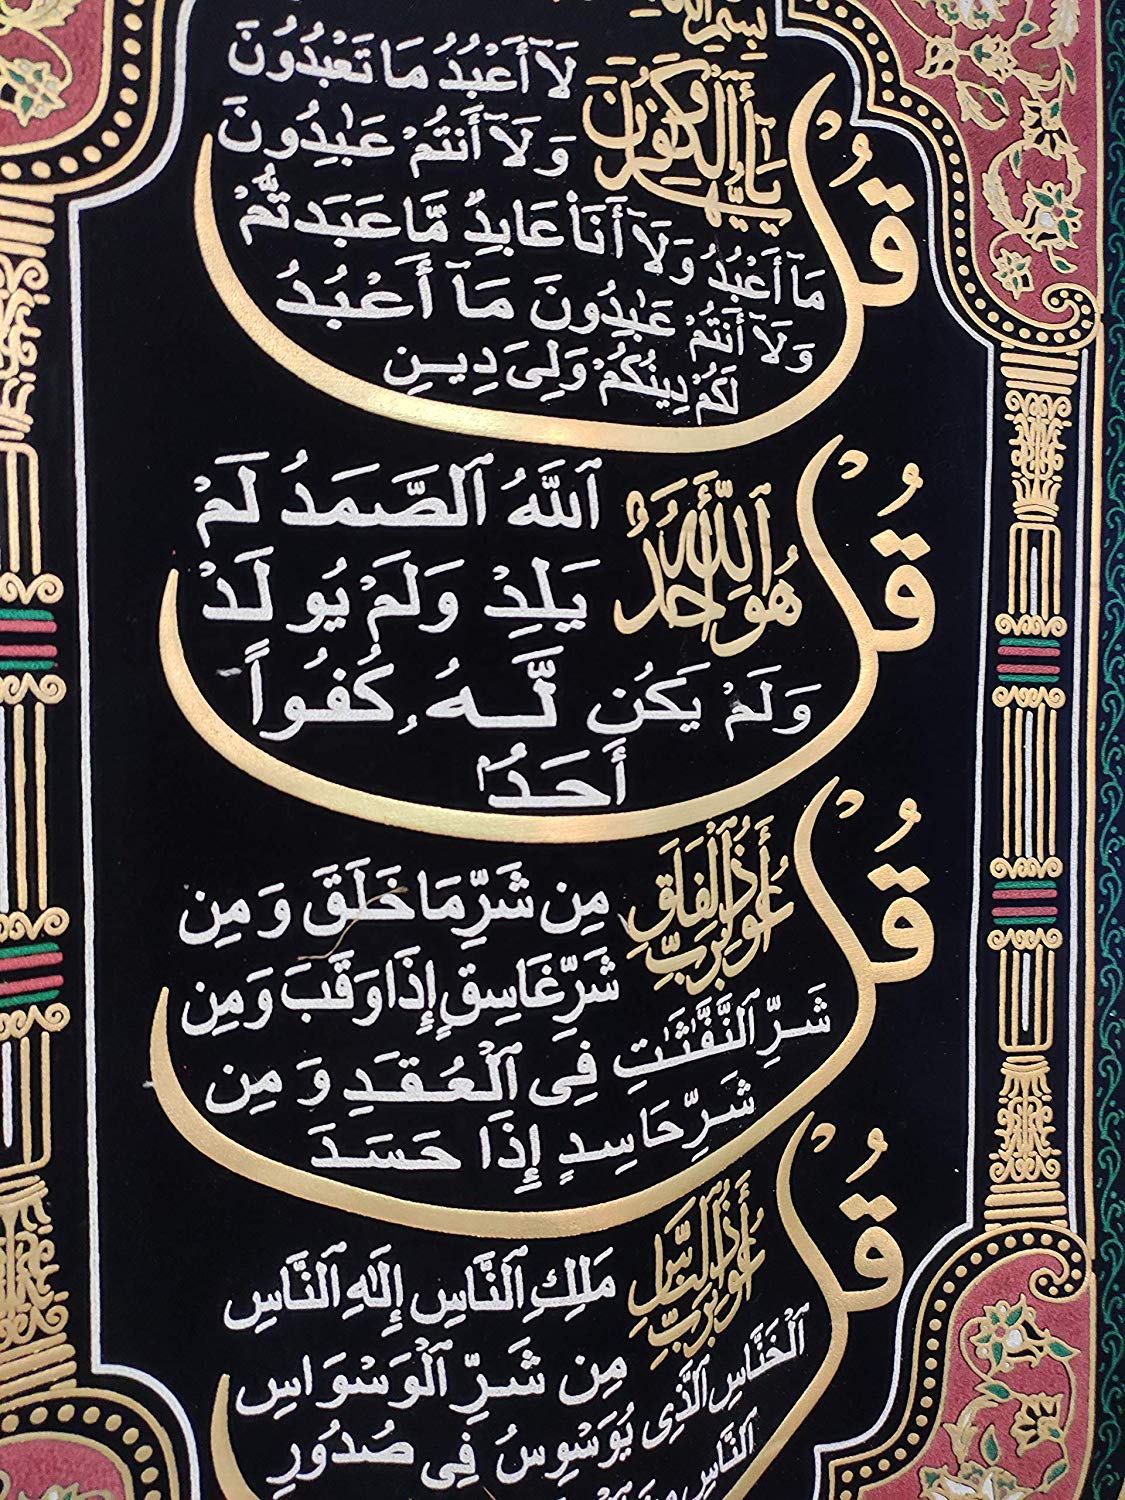 بِسْمِ اللَّهِ
قُلْ يَٰٓأَيُّهَا ٱلْكَٰفِرُونَ
لَآ أَعْبُدُ مَا تَعْبُدُونَ
وَلَآ أَنتُمْ عَٰبِدُونَ
مَآ أَعْبُدُ وَلَآ أَنَا۠ عَابِدٌ مَّا عَبَدتُّمْ
وَلَآ أَنتُمْ عَٰبِدُونَ مَآ أَعْبُدُ
لَكُمْ دِينُكُمْ وَلِىَ دِينِ
قُلْ هُوَ ٱللَّهُ أَحَدٌ
ٱللَّهُ ٱلصَّمَدُ لَمْ
يَلِدْ وَلَمْ يُولَدْ
وَلَمْ يَكُن لَّهُۥ كُفُواً
أَحَدٌ
قُلْ أَعُوذُ بِرَبِّ ٱلْفَلَقِ
مِن شَرِّ مَا خَلَقَ وَمِن
شَرِّ غَاسِقٍ إِذَا وَقَبَ وَمِن
شَرِّ ٱلنَّفَّٰثَٰتِ فِى ٱلْعُقَدِ وَمِن
شَرِّ حَاسِدٍ إِذَا حَسَدَ
قُلْ أَعُوذُ بِرَبِّ ٱلنَّاسِ
مَلِكِ ٱلنَّاسِ إِلَٰهِ ٱلنَّاسِ
مِن شَرِّ ٱلْوَسْوَاسِ
ٱلْخَنَّاسِ ٱلَّذِى يُوَسْوِسُ فِى صُدُورِ
ٱلنَّاسِ